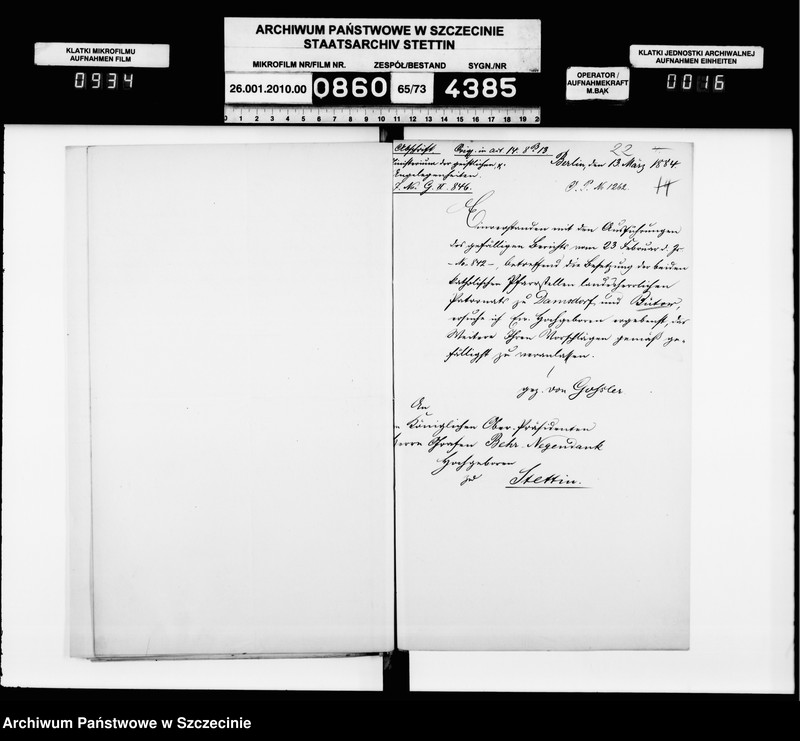 ARCHIWUM PAŃSTWOWE W SZCZECINIE
STAATSARCHIV STETTIN
MIKROFILM NR/FILM NR. ZESPÓŁ/BESTAND SYGN./NR
26.001.2010.00 0860 65/73 4385
KLATKI MIKROFILMU
AUFNAHMEN FILM
0934
OPERATOR /
AUFNAHMEKRAFT
M.BĄK
KLATKI JEDNOSTKI ARCHIWALNEJ
AUFNAHMEN EINHEITEN
0016
0 1 2 3 4 5 6 7 8 9 10 11 12 13 14 15 16 17 18 19 20
22
Abschrift Orig. in act. 14. 8 13
Ministerium der geistlichen p.
Angelegenheiten.
J. No. G. II. 846.
Berlin, den 13 März 1884
O. P. No 1262.
Einverstanden mit den Ausführungen
des gefälligen Berichts vom 23 Februar d. Js.
- No. 842 -, betreffend die Besetzung der beiden
katholischen Pfarrstellen landesherrlichen
Patronats zu Damsdorf und Bütow,
ersuche ich Ew. Hochgeboren ergebenst, das
Weitere Ihren Vorschlägen gemäß ge-
fälligst zu veranlassen.
gez. von Goßler
An
Königlichen Ober-Präsidenten
Herrn Grafen Behr-Negendank
Hochgeboren
zu Stettin.
Archiwum Państwowe w Szczecinie